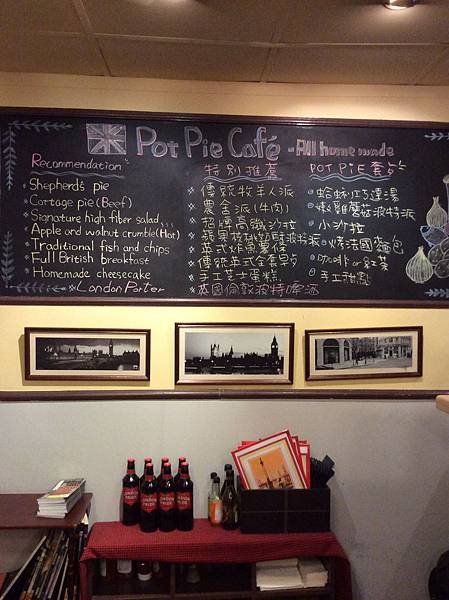 Pot Pie Café - All home made
Recommendation
Shepherd's pie
Cottage pie (Beef)
Signature high fiber salad
Apple and walnut crumble (Hot)
Traditional fish and chips
Full British breakfast
Homemade cheesecake
London Porter
特別推薦
傳統牧羊人派
農舍派(牛肉)
招牌高纖沙拉
英式炸魚薯條
傳統英式全套早点
手工芝士蛋糕
英國倫敦波特啤酒
POT PIE 套
蛤蜊巧達湯
嫩雞蘑菇波特派
小沙拉
烤法國麵包
咖啡 or 紅茶
手工甜點
LONDON PRIDE